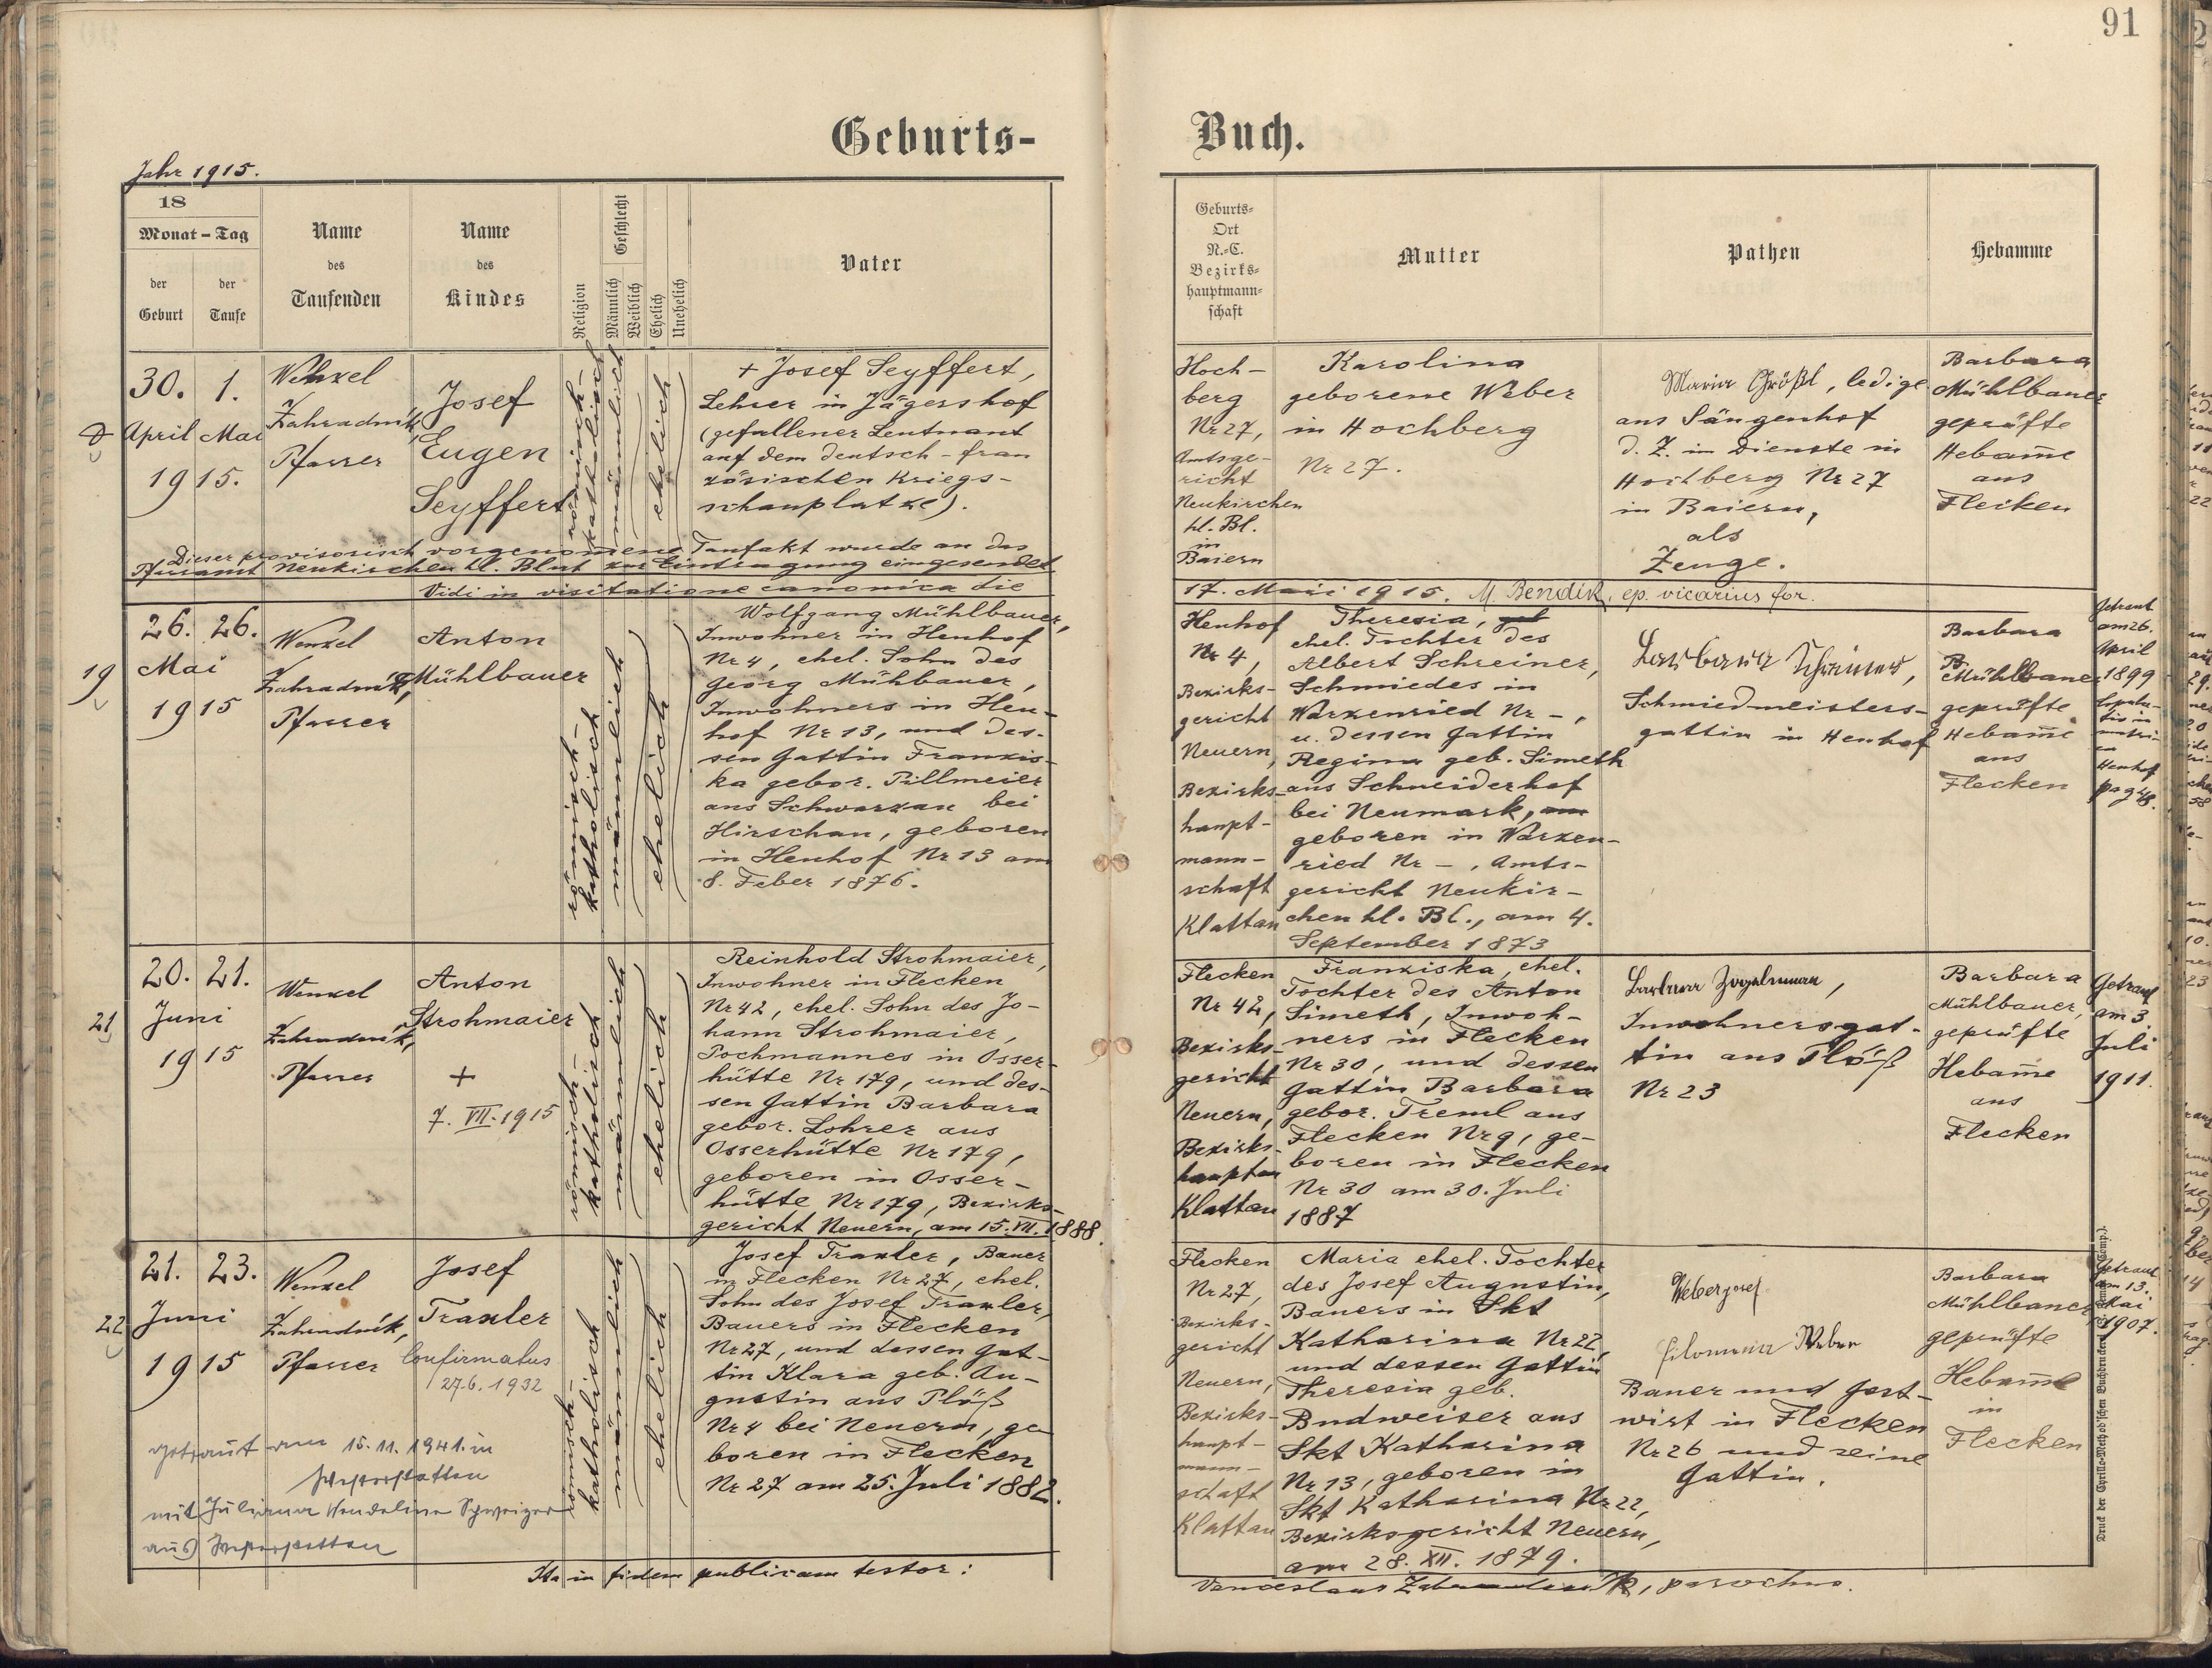 91
Geburts-
Buch.
Jahr 1915.
18
Monat – Tag
der Geburt
der Taufe
Name des Taufenden
Name des Kindes
Religion
Geschlecht
Männlich
Weiblich
Ehelich
Unehelich
Vater
Geburts-
Ort
N.-C.
Bezirks-
hauptmann-
schaft
Mutter
Pathen
Hebamme
30. 1.
April Mai
1915.
Wenzel
Zahradnik,
Pfarrer
Josef
Eugen
Seyffert
römisch-
katholisch
männlich
ehelich
+ Josef Seyffert,
Lehrer in Jägershof
(gefallener Leutnant
auf dem deutsch-fran
zösischen Kriegs-
schauplatze).
Hoch-
berg
Nr 27,
Amtsge-
richt
Neukirchen
hl. Bl.
in
Baiern
Karolina
geborene Weber
in Hochberg
Nr 27.
Maria Größl, ledige
aus Sängenhof
d. Z. im Dienste in
Hochberg Nr 27
in Baiern,
als
Zeuge.
Barbara
Mühlbauer
geprüfte
Hebam̄e
aus
Flecken
Dieser provisorisch vorgenomene Taufakt wurde an das
Pfarramt Neukirchen hl. Blut zur Eintragung eingesendet
Vidi in visitatione canonica die
17. Maii 1915. M. Bendik, ep. vicarius for.
19
26. 26.
Mai
1915
Wenzel
Zahradnik,
Pfarrer
Anton
Mühlbauer
römisch-
katholisch
männlich
ehelich
Wolfgang Mühlbauer,
Inwohner in Henhof
Nr 4, ehel. Sohn des
Georg Mühbauer,
Inwohners in Hen-
hof Nr 13, und des-
sen Gattin Franzis-
ka gebor. Pillmeier
aus Schwarzau bei
Hirschau, geboren
in Henhof Nr 13 am
8. Feber 1876.
Henhof
Nr 4,
Bezirks-
gericht
Neuern,
Bezirks-
haupt-
mann-
schaft
Klattau
Theresia, geb
ehel. Tochter des
Albert Schreiner,
Schmiedes in
Warzenried Nr –,
u. dessen Gattin
Regina geb. Simeth
aus Schneiderhof
bei Neumark, am
geboren in Warzen-
ried Nr –, Amts-
gericht Neukir-
chen hl. Bl., am 4.
September 1873
Barbara Schreiner,
Schmiedmeisters-
gattin in Henhof
Barbara
B.
Mühlbauer
geprüfte
Hebam̄e
aus
Flecken
Getraut
am 26.
April
1899
Henhof
pag 48.
21
20. 21.
Juni
1915
Wenzel
Zahradnik,
Pfarrer
Anton
Strohmaier
+
7. VII. 1915
römisch-
katholisch
männlich
ehelich
Reinhold Strohmaier,
Inwohner in Flecken
Nr 42, ehel. Sohn des Jo-
hann Strohmaier,
Pochmannes in Osser-
hütte Nr 179, und des-
sen Gattin Barbara
gebor. Lohrer aus
Osserhütte Nr 179,
geboren in Osser-
hütte Nr 179, Bezirks-
gericht Neuern, am 15. VII. 1888.
Flecken
Nr 42,
Bezirks-
gericht
Neuern,
Bezirks-
hauptm
Klattau
Franziska, ehel.
Tochter des Anton
Simeth, Inwoh-
ners in Flecken
Nr 30, und dessen
Gattin Barbara
gebor. Treml aus
Flecken Nr 9, ge-
boren in Flecken
Nr 30 am 30. Juli
1887
Barbara
Inwohnersgat-
tin aus Plöß
Nr 23
Barbara
Mühlbauer,
geprüfte
Hebam̄e
aus
Flecken
Getraut
am 3
Juli
1911.
22
21. 23.
Juni
1915
Wenzel
Zahradnik,
Pfarrer
Josef
Traxler
Confirmatus
27.6. 1932
römisch-
katholisch
männlich
ehelich
Josef Traxler, Bauer
in Flecken Nr 27, ehel.
Sohn des Josef Traxler,
Bauers in Flecken
Nr 27, und dessen Gat-
tin Klara geb. Au-
gustin aus Plöß
Nr 4 bei Neuern, ge
boren in Flecken
Nr 27 am 25. Juli 1882.
Flecken
Nr 27,
Bezirks-
gericht
Neuern,
Bezirks-
haupt-
mann-
schaft
Klattau
Maria ehel. Tochter
des Josef Augustin,
Bauers in Skt
Katharina Nr 22,
und dessen Gattin
Theresia geb.
Budweiser aus
Skt Katharina
Nr 13, geboren in
Skt Katharina Nr 22,
Bezirksgericht Neuern,
am 28. XII. 1879.
Weber Josef
Filomena Weber
Bauer und Gast-
wirt in Flecken
Nr 26 und seine
Gattin.
Barbara
Mühlbauer
geprüfte
Hebam̄e
in
Flecken
Getraut
am 13.
Mai
1907.
getraut am 15. 11. 1941. in
Westerstetten
mit Juliana Wendelina Schweizer
aus Westerstetten
Ita in fidem publicam testor:
Venceslaus Zahradnik, parochus.